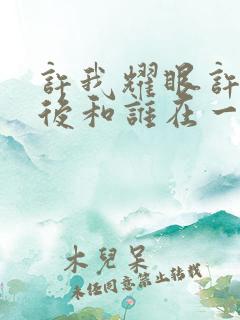 許我耀眼許
後和誰在一
木兒呆
未經同意禁止轉載